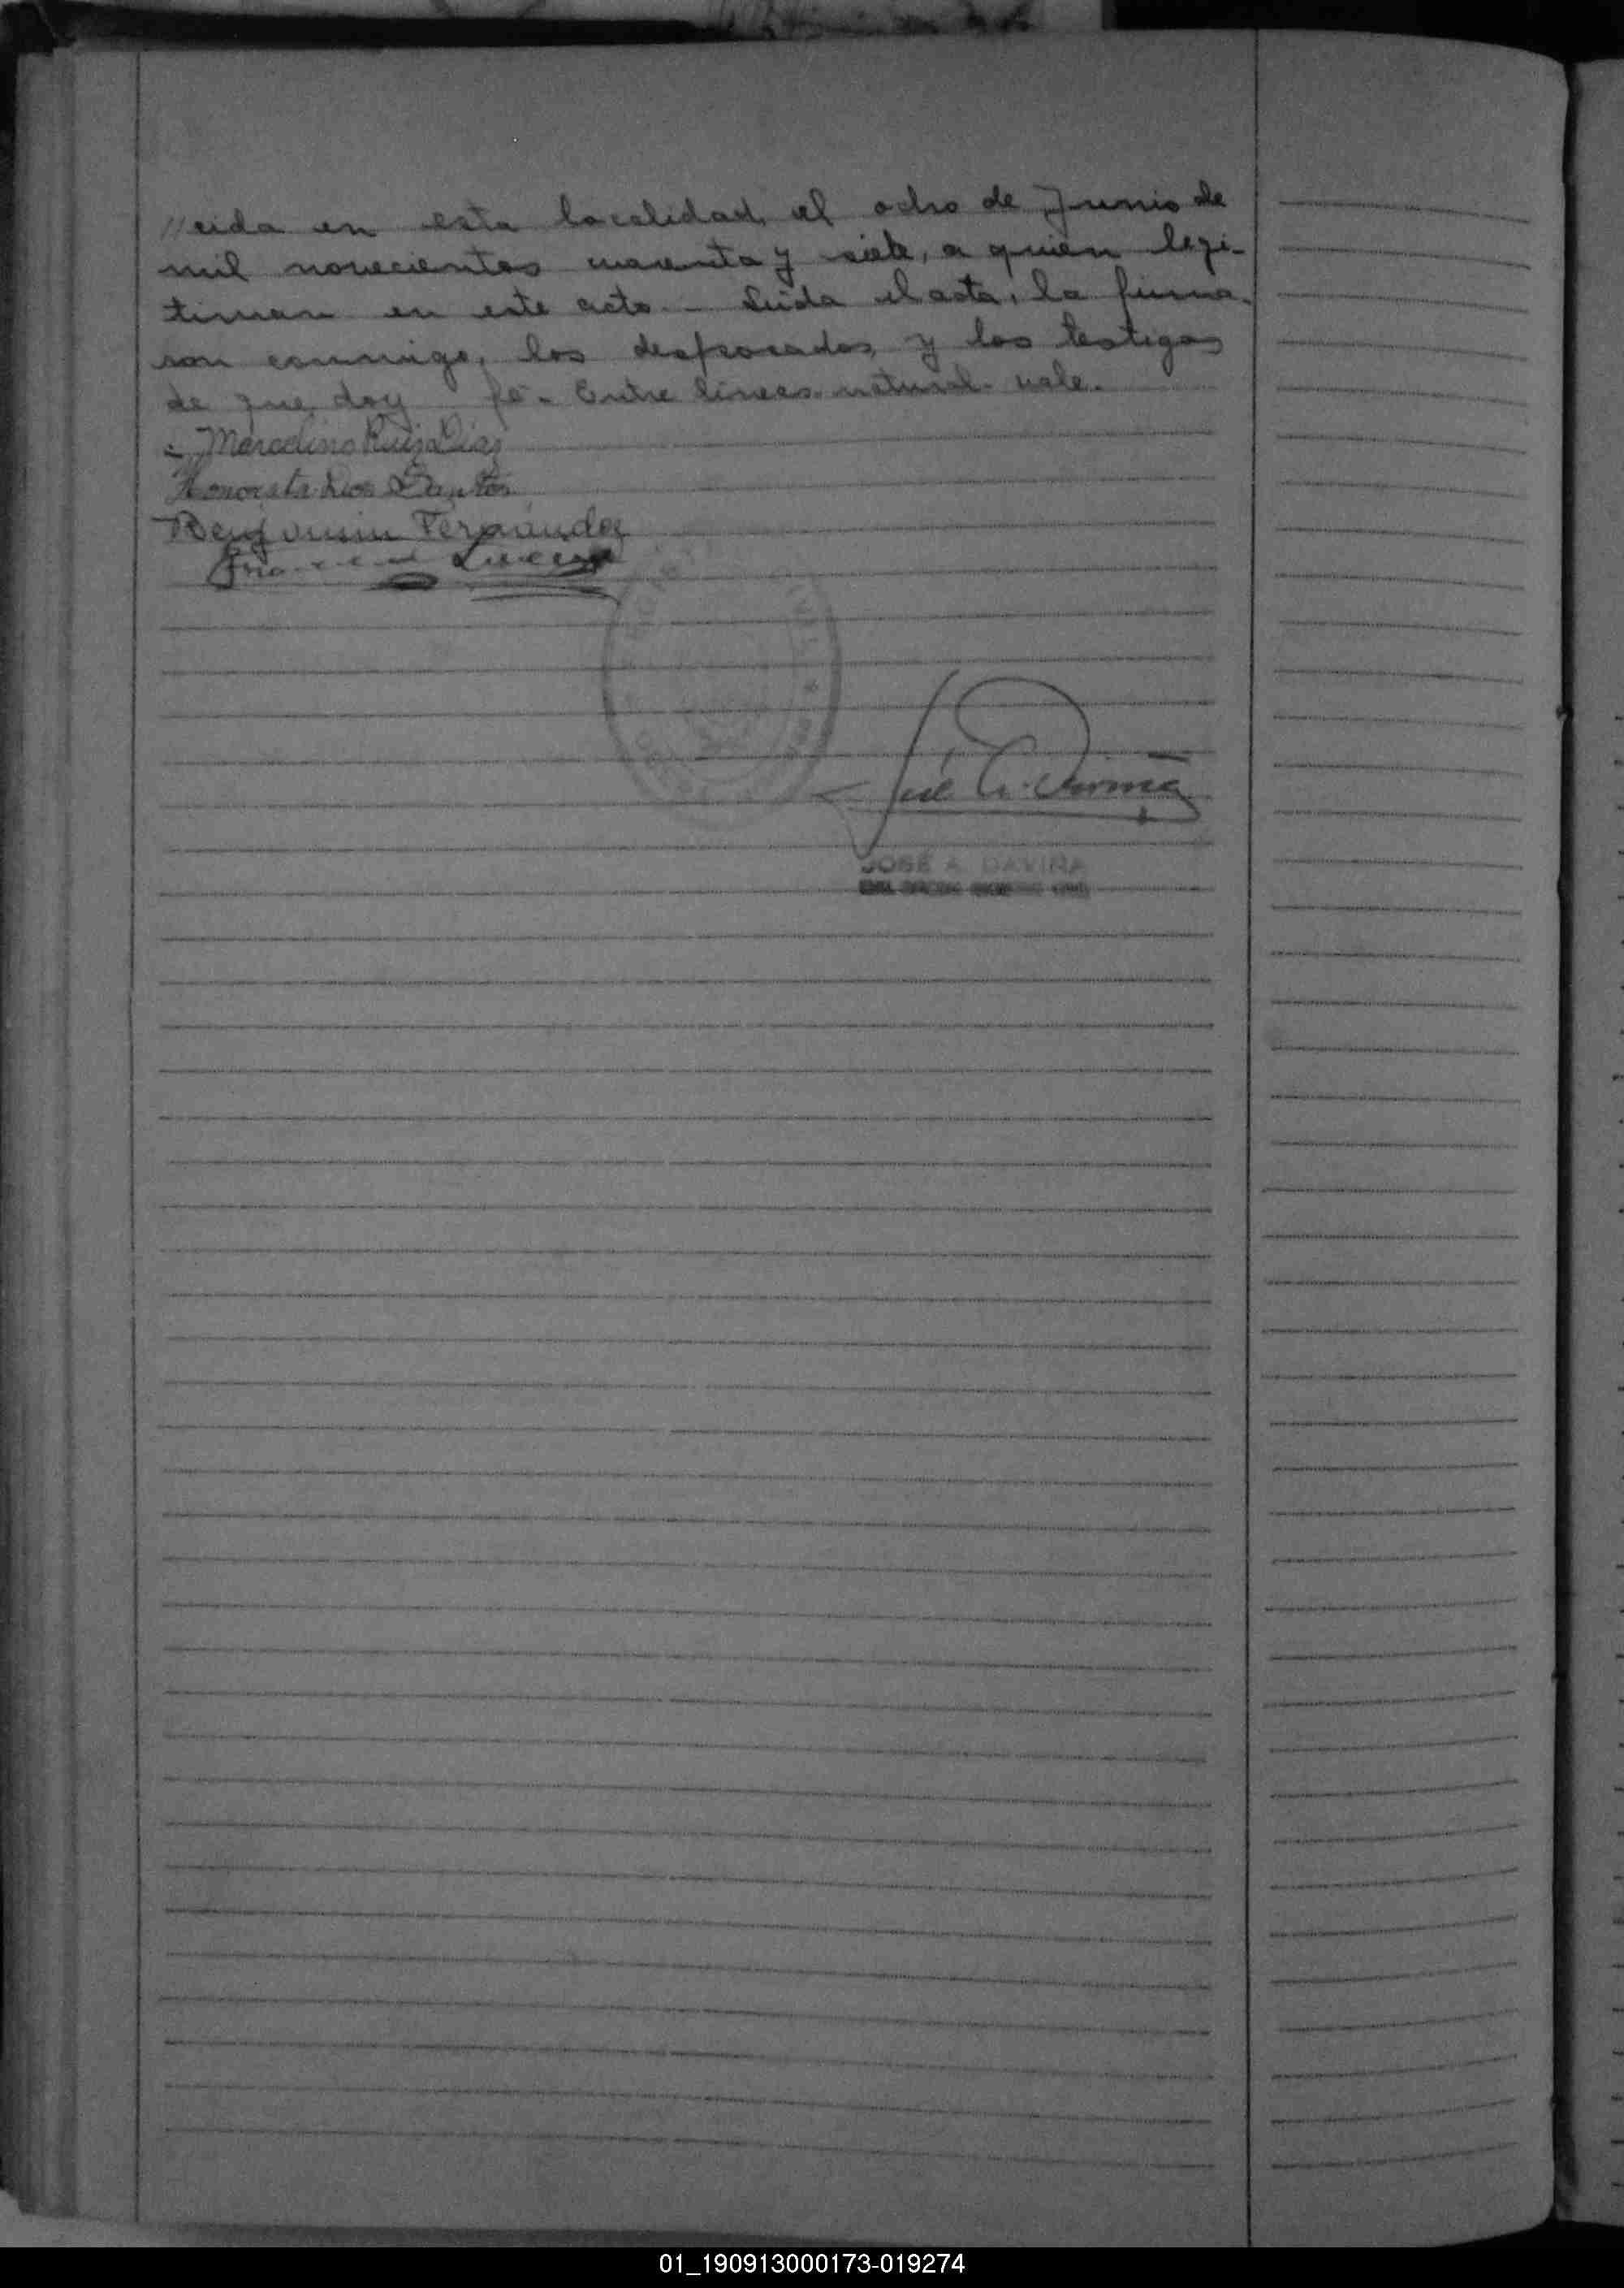 //cida en esta localidad, el ocho de Junio de
mil novecientos cuarenta y siete, a quien legi-
timan en este acto.- Leída el acta, la firma-
ron conmigo, los desposados y los testigos
de que doy fé.- Entre líneas. natural. vale.-
Marcelino Ruiz Diaz
Honorata Dos Santos
Benjamin Fernandez
José A. Daviña
JOSÉ A. DAVIÑA
01_190913000173-019274